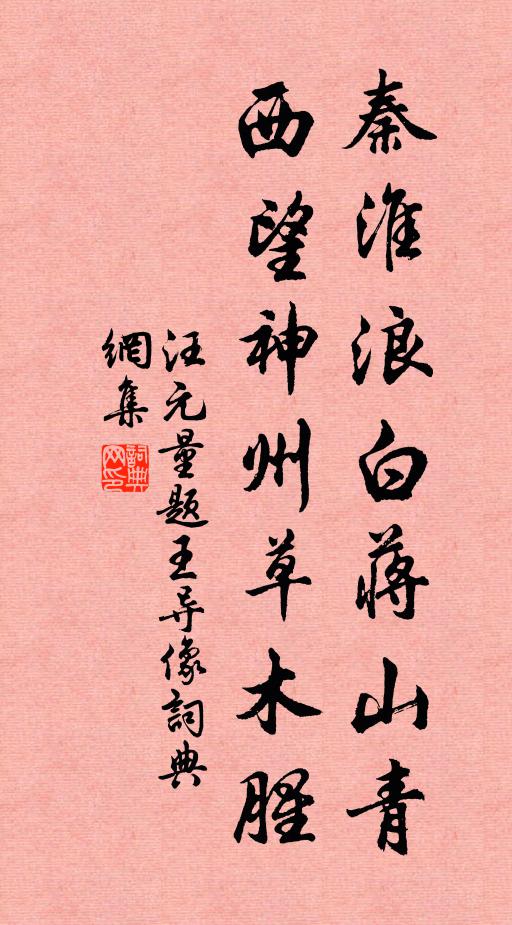 秦淮浪白蒋山青
西望神州草木腥
汪元量题王导像詞典
網集
詞典
网印